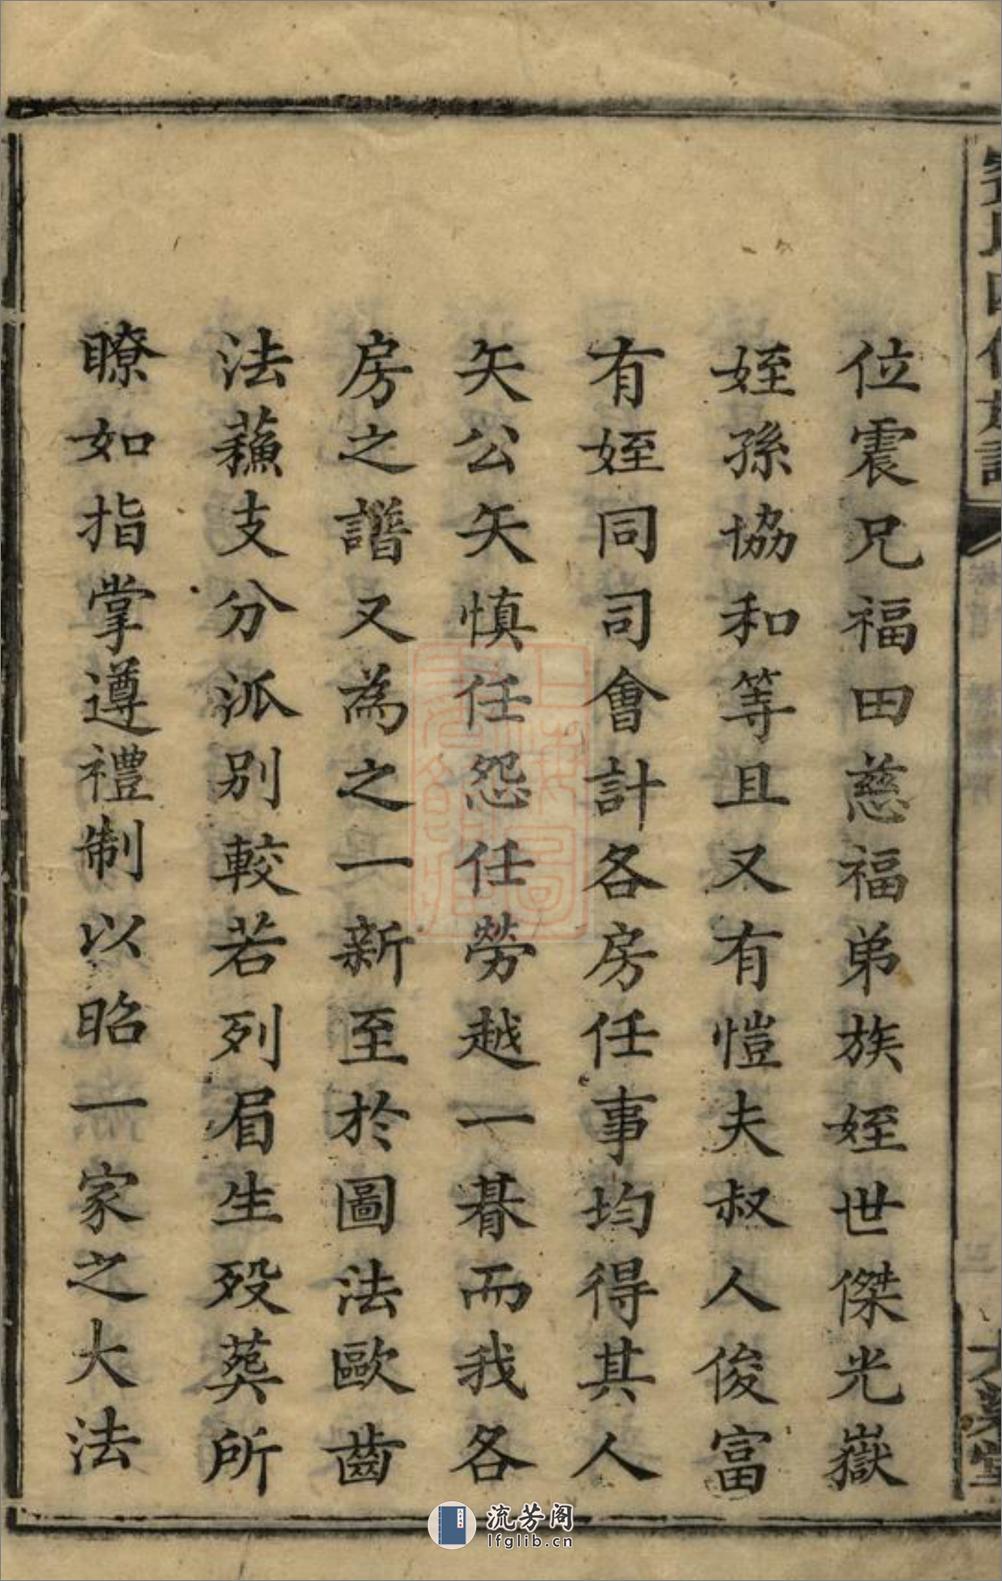 位震兄福田慈福弟族姪世傑光嶽
姪孫協和等且又有愷夫叔人俊富
有姪同司會計各房任事均得其人
矢公矢慎任怨任勞越一朞而我各
房之譜又為之一新至於圖法歐齒
法蘓支分派别較若列眉生殁葬所
瞭如指掌遵禮制以昭一家之大法
流芳阁
lfglib.cn